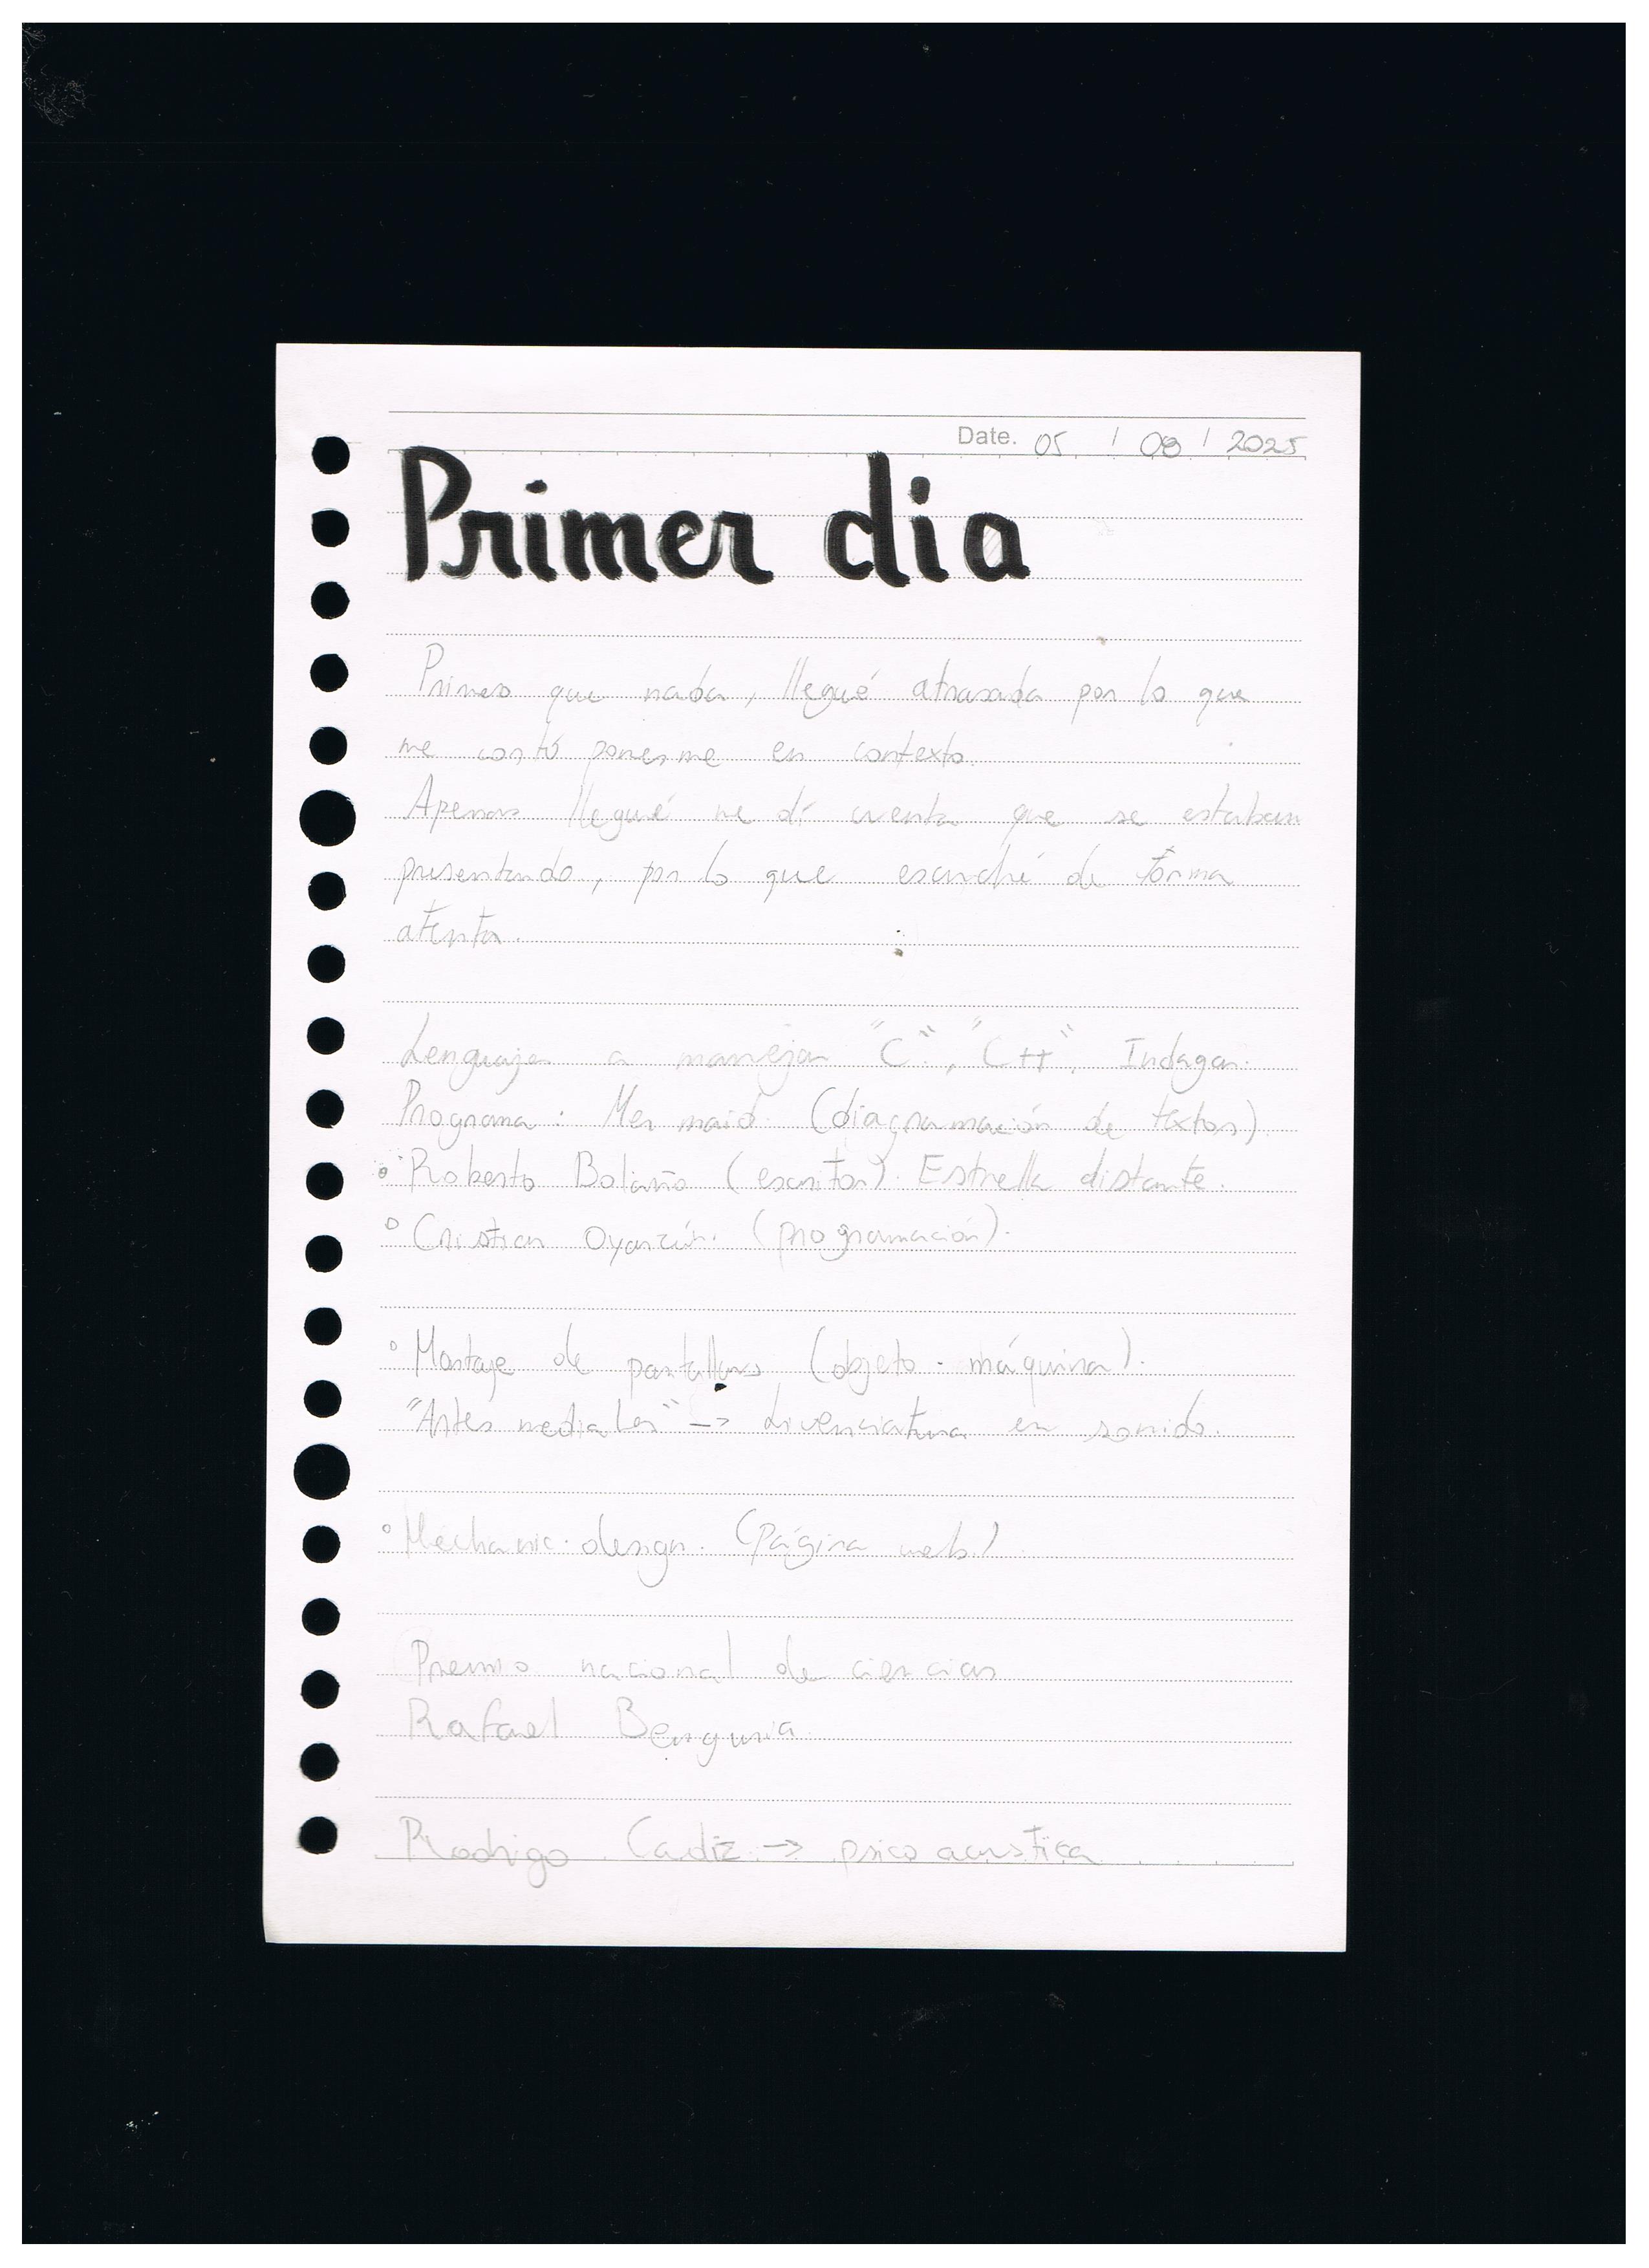 Date. 05 / 08 / 2025
Primer dia
Primero que nada, llegué atrasada por lo que
me costó ponerme en contexto.
Apenas llegué me dí cuenta que se estaban
presentando, por lo que escuché de forma
atenta.
Lenguaje a manejar "C", "C++". Indagar.
Programa: Mermaid (diagramación de textos)
• Roberto Bolaño (escritor). Estrella distante.
° Cristian Oyarzún. (programación).
° Montaje de pantallas (objeto - máquina).
"Artes mediales" -> Licenciatura en sonido.
° Mechanic. design. (Página web)
Premio nacional de ciencias
Rafael Benguria.
Rodrigo Cadiz -> psico acustica